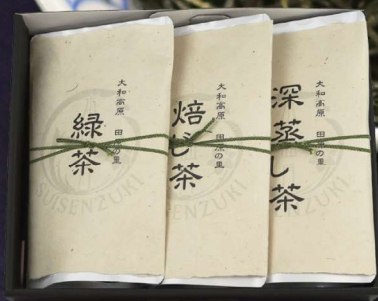 大和高原 田原の里
緑茶
SUISENZUKI
大和高原 田原の里
焙じ茶
SUISENZUKI
大和高原 田原の里
深蒸し茶
SUISENZUKI